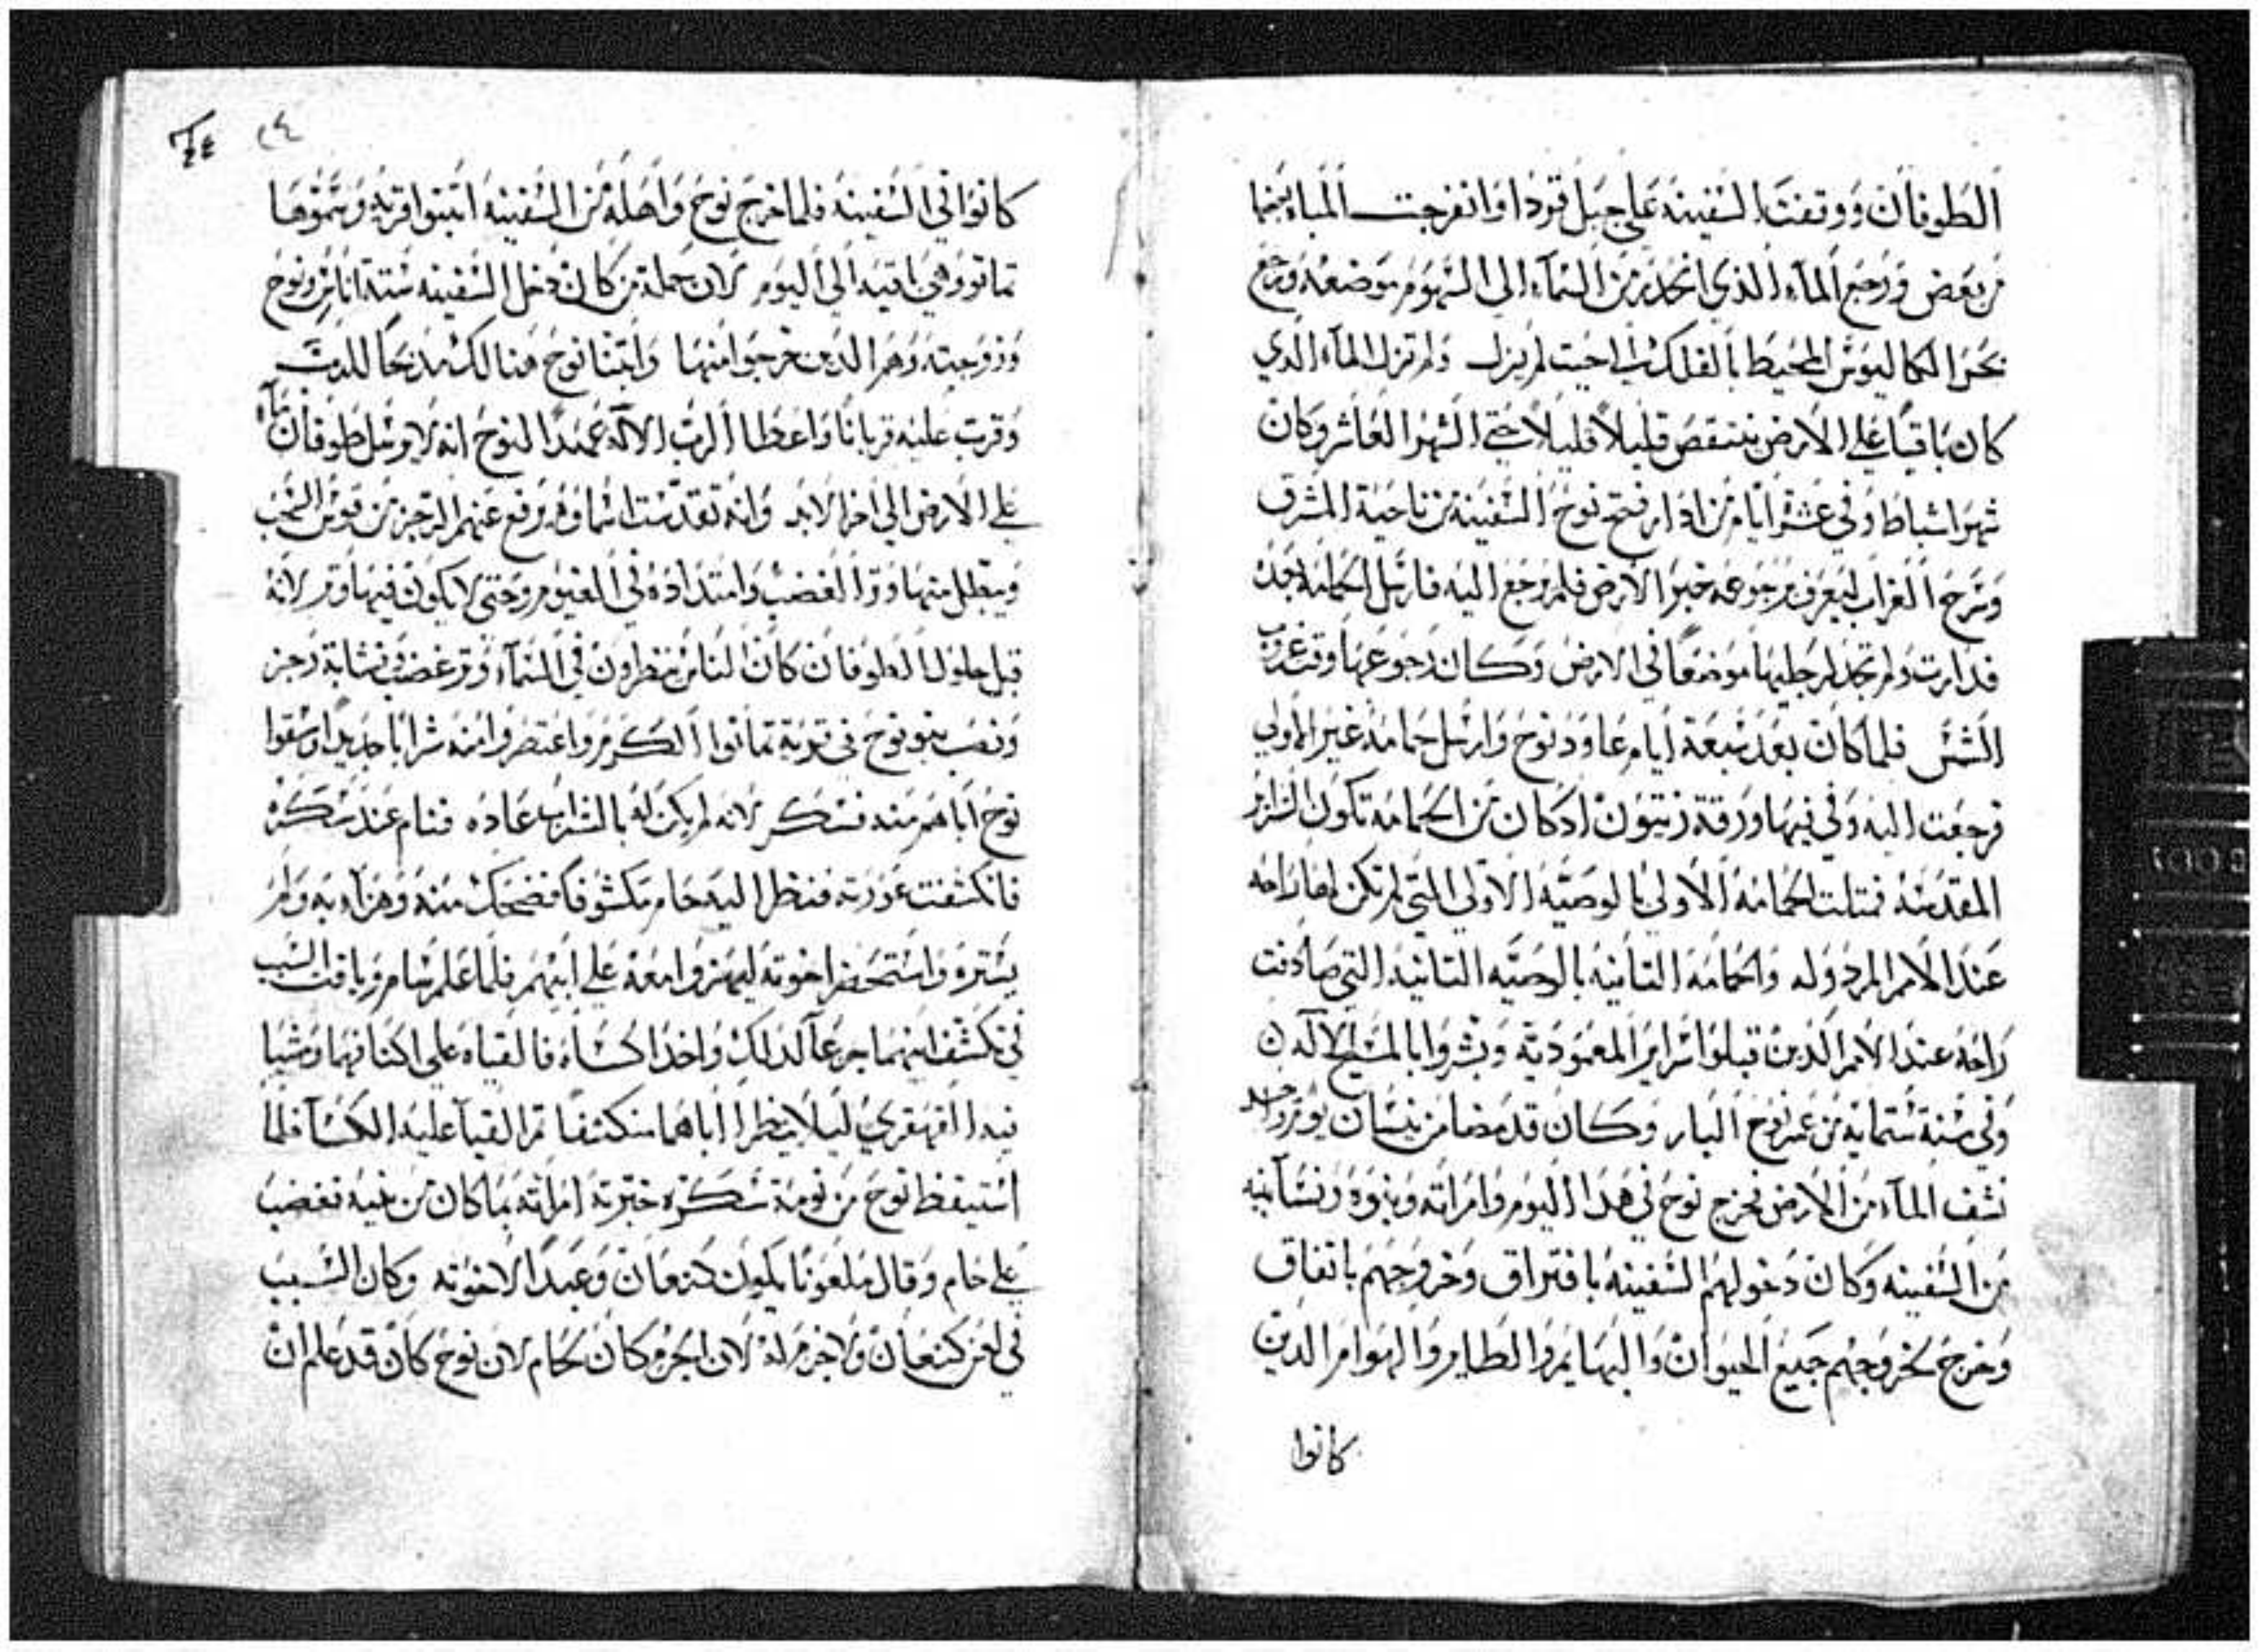 الطوفان ووقفت السفينة على جبل قردا وانفرجت المياه بعضها
من بعض ورجع الماء الذي انحدر من السماء الى السموم موضعه ورجع
بحر المحيط بالفلك الى حيت لم يزل ولم تزل الماء الذي
كان باقيا على الارض ينتقص قليلا قليلا حتى الشهر العاشر وكان
شهر اشباط وفي عشرة ايام من ادار فتح نوح السفينة من ناحية المشرق
وسرح الغراب ليعرف رجوعه خبر الارض فلم رجع اليه فارسل الحمامة
فدارت ولم تجد لرجليها موضعا في الارض وكان رجوعها وقت غروب
الشمس فلما كان بعد سبعة ايام عاود نوح وارسل حمامة غير الاولى
فرجعت اليه وفي فيها ورقة زيتون اد كان من الحمامة تكون السراير
المقدسة فمتلت الحمامة الاولى بالوصية الاولى التي لم تكن لها راحه
عند الامم المردوله والحمامة التانية بالوصية التانية التي صادفت
راحة عند الامم الدين قبلوا سراير المعمودية وبشروا بالمسيح الاله
وفي سنة ستماية من عمر نوح البار وكان قد مضا من نيسان يوم واحد
نشف الماء من الارض فخرج نوح في هدا اليوم وامراته وبنوه ونسا بنيه
من السفينه وكان دخولهم السفينه بافتراق وخروجهم باتفاق
وخرج بخروجهم جميع الحيوان والبهايم والطاير والهوام الدين
كانوا
٢٤
كانوا في السفينة فلما خرج نوح واهله من السفينه ابتنوا قرية وسموها
تمانو وهي باقية الى اليوم لان جملة من كان دخل السفينه ستة اناس ونوح
وزوجته وهم الدين خرجوا منها وابتنا نوح هنالك مدبحا للرب
وقرب عليه قربانا واعطا الرب الاله عهدا لنوح انه لا يرسل طوفان ماء
على الارض الى اخر الابد وانه ورفع عنهم الرجز من قوس السحب
ويبطل منها وتر الغضب وامتداده في الغيوم وحتى لا يكون فيها وتر لانه
قبل حلول الطوفان كان الناس ينظرون في السماء وتر غضب ونشابة رجز
ونصب بنو نوح في قرية تمانوا الكرم واعتصروا منه شرابا جديدا وسقوا
نوح اباهم منه فسكر لانه لم يكن له بالشراب عاده فنام عند سكره
فانكشفت عورته فنظر اليه حام مكشوفا فضحك منه وهزا به ولم
يستره واستحضر اخوته ليهزوا معه على ابيهم فلما علم سام ويافت السبب
في تكشف ابيهما جزعا لدلك واخدا كساء فالقياه على اكتافهما ومشيا
فيه القهقرى ليلا ينظرا اباهما منكشفا تم القيا عليه الكسا فلما
استيقظ نوح من نومة سكره خبرته امراته بما كان من بنيه فغضب
على حام وقال ملعونا يكون كنعان وعبدا لاخوته وكان السبب
في لعن كنعان ولا جرم له لان الجرم كان لحام لان نوح كان قد علم ان